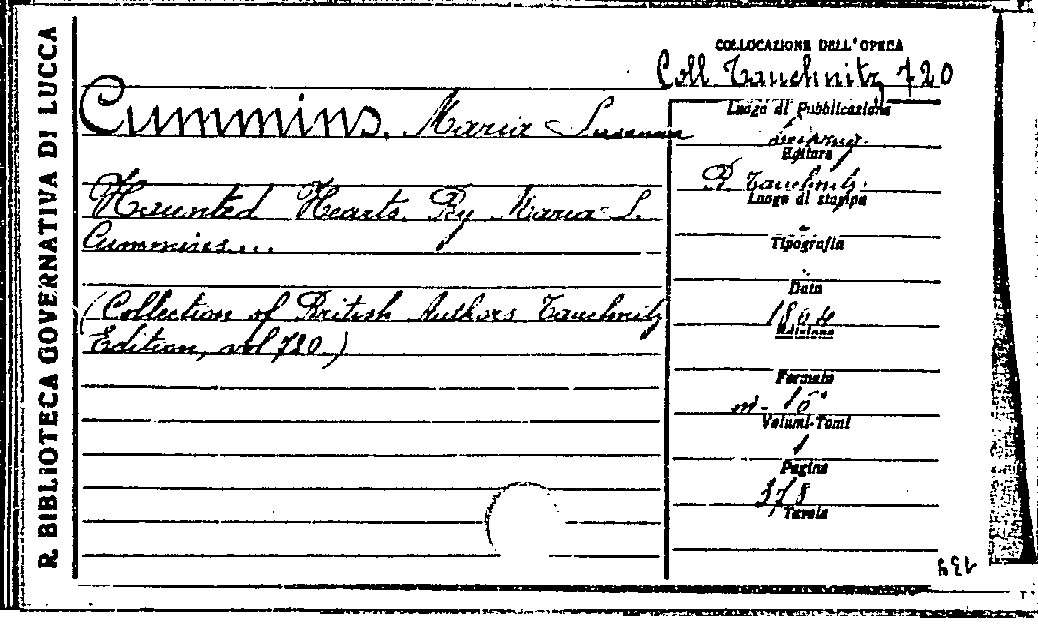 R. BIBLIOTECA GOVERNATIVA DI LUCCA
COLLOCAZIONE DELL'OPERA
Coll. Tauchnitz 720
Cummins, Maria Susanna
Haunted Hearts. By Maria S.
Cummins...
(Collection of British Authors Tauchnitz
Edition, vol 720.)
Luogo di Pubblicazione
Editore
B. Tauchnitz.
Luogo di stampa
-
Tipografia
Data
1864
Edizione
Formato
m-16°
Volumi-Tomi
1
Pagine
Tavole
139